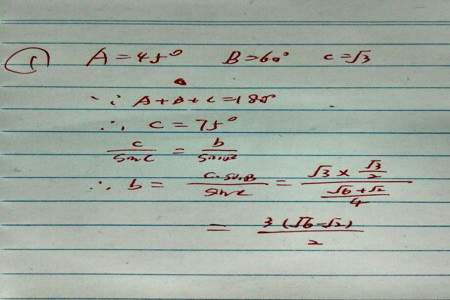 ① A=45° B=60° c=√3
∵ A+B+C=180°
∴ C=75°
c/sinC = b/sinB
∴ b = c·sinB/sinC = (√3 × √3/2)/((√6+√2)/4)
= 3(√6-√2)/2